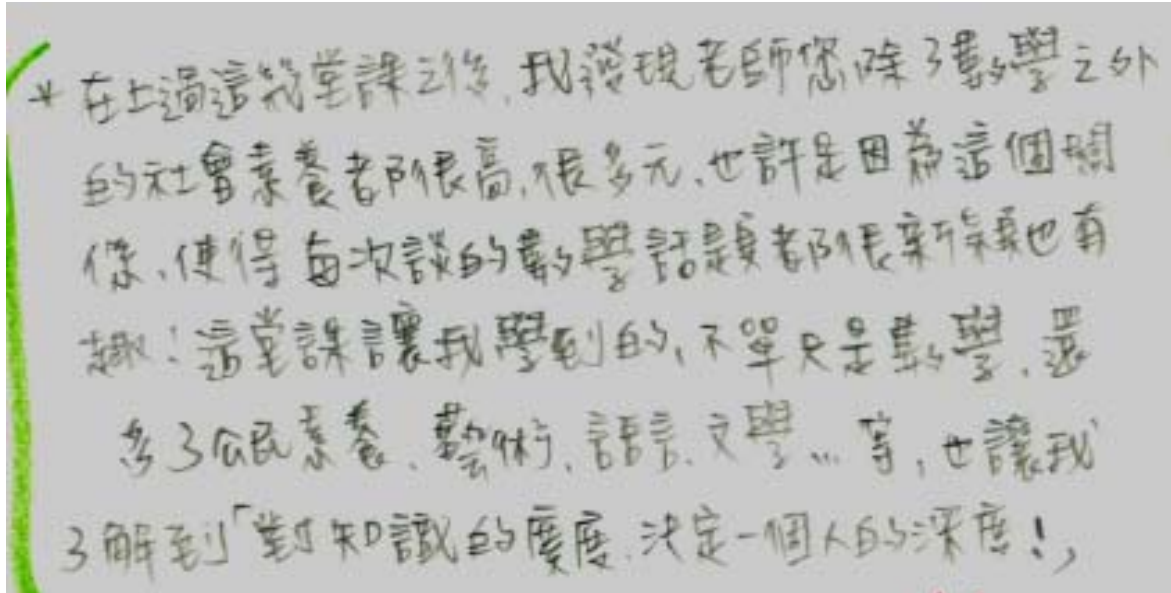 * 在上過這幾堂課之後,我發現老師您除了數學之外
的社會素養都很高,很多元、也許是因為這個關
係、使得每次談的數學話題都很新穎也有
趣!這堂課讓我學到的、不單只是數學、還
多了公民素養、藝術、語言、文學…等,也讓我
了解到「對知識的廣度、決定一個人的深度!」